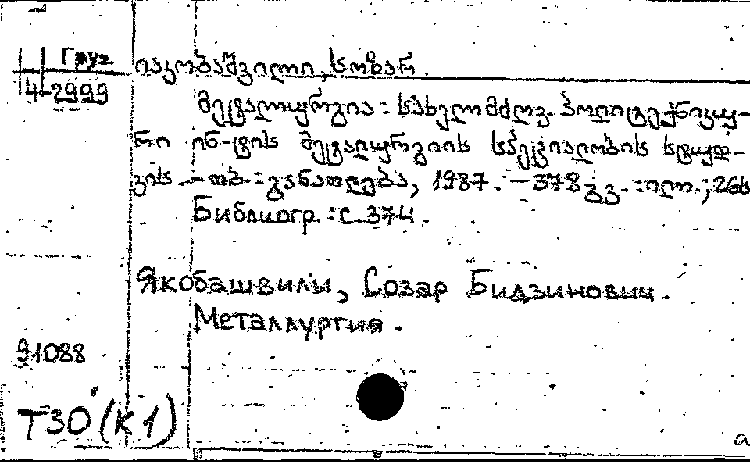 Груз
4-2999
იაკობაშვილი, სოზარ.
მეტალურგია: სახელმძღვ. პოლიტექნიკუ-
რი ინ-ტის მეტალურგიის სპეციალობის სტუდ-
ვის. - თბ.: განათლება, 1987. - 378 გვ.: ილ.; 26ს
Библиогр.: с. 374.
Якобашвили, Созар Бидзинович.
Металлургия.
91088
Т30 (К1)
а